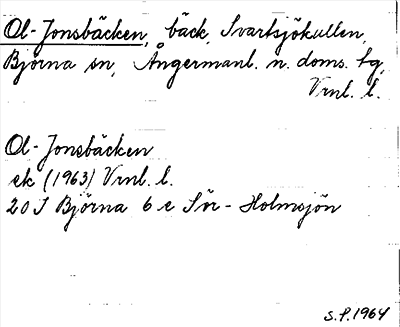 Ol-Jonsbäcken, bäck, Svartsjökullen,
Björna sn, Ångermanl. n. doms. tg,
Vrnl. l.
Ol-Jonsbäcken
ek (1963) Vrnl. l.
20 I Björna 6 e Sör-Holmsjön
S.P. 1964